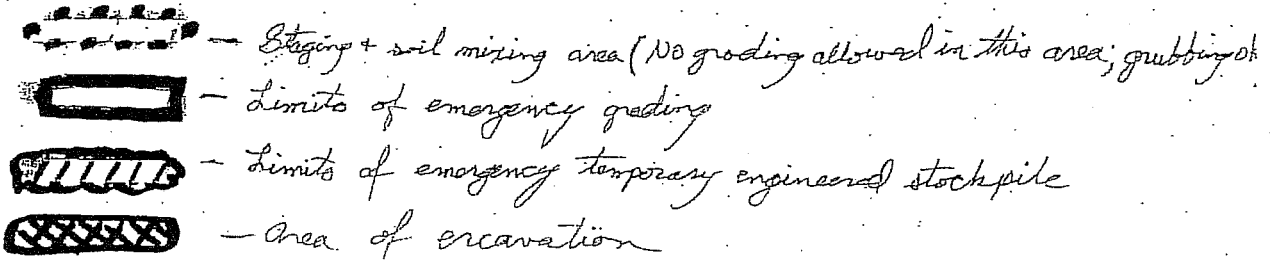 - Staging + soil mixing area (No grading allowed in this area; grubbing ok
- Limits of emergency grading
- Limits of emergency temporary engineered stockpile
- Area of excavation